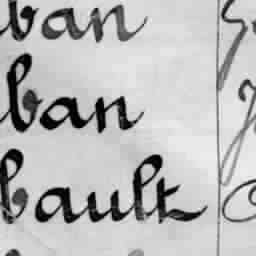 ban
ban
bault